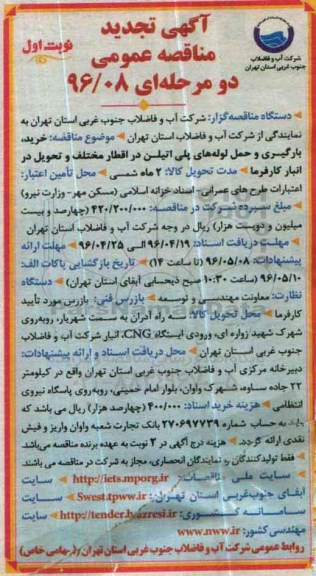 آگهی تجدید
مناقصه عمومی
دو مرحله‌ای ۹۶/۰۸
نوبت اول
شرکت آب و فاضلاب
جنوب غربی استان تهران
دستگاه مناقصه‌گزار: شرکت آب و فاضلاب جنوب غربی استان تهران به
نمایندگی از شرکت آب و فاضلاب استان تهران موضوع مناقصه: خرید،
بارگیری و حمل لوله‌های پلی اتیلن در اقطار مختلف و تحویل در
انبار کارفرما مدت تحویل کالا: ۲ ماه شمسی محل تأمین اعتبار:
اعتبارات طرح های عمرانی- اسناد خزانه اسلامی (مسکن مهر- وزارت نیرو)
مبلغ سپرده شرکت در مناقصه: ۴۲۰/۲۰۰/۰۰۰ (چهارصد و بیست
میلیون و دویست هزار) ریال در وجه شرکت آب و فاضلاب استان تهران
مهلت دریافت اسناد: ۹۶/۰۴/۱۹ الی ۹۶/۰۴/۲۵ مهلت ارائه
پیشنهادات: ۹۶/۰۵/۰۸ (تا ساعت ۱۴) تاریخ بازگشایی پاکات الف:
۹۶/۰۵/۱۰ (ساعت ۱۰:۳۰ صبح ذیحسابی آبفای استان تهران) دستگاه
نظارت: معاونت مهندسی و توسعه بازرس فنی: بازرس مورد تأیید
کارفرما محل تحویل کالا: سه راه آدران به سمت شهریار، روبه‌روی
شهرک شهید زواره ای، ورودی ایستگاه CNG، انبار شرکت آب و فاضلاب
جنوب غربی استان تهران محل دریافت اسناد و ارائه پیشنهادات:
دبیرخانه مرکزی آب و فاضلاب جنوب غربی استان تهران واقع در کیلومتر
۲۲ جاده ساوه، شهرک واوان، بلوار امام خمینی، روبه‌روی پاسگاه نیروی
انتظامی هزینه خرید اسناد: ۴۰۰/۰۰۰ (چهارصد هزار) ریال می باشد که
باید به حساب شماره ۲۷۰۶۹۷۷۳۹ بانک تجارت شعبه واوان واریز و فیش
نقدی ارائه گردد. هزینه درج آگهی در ۲ نوبت به عهده برنده مناقصه می‌باشد.
فقط تولیدکنندگان و نمایندگان انحصاری، مجاز به شرکت در مناقصه می باشند.
سایت ملی مناقصات: http://iets.mporg.ir سایت
آبفای جنوب‌غربی استان تهران: Swest.tpww.ir سایت
http://tender.bazresi.ir سایت
مهندسی کشور: www.nww.ir
روابط عمومی شرکت آب و فاضلاب جنوب غربی استان تهران (سهامی خاص)